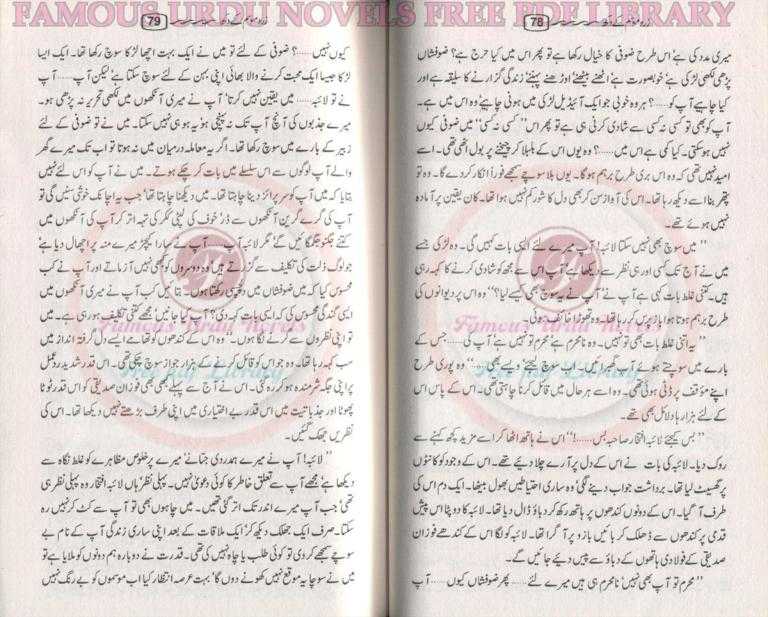 FAMOUS URDU NOVELS FREE PDF LIBRARY
78
میری مدد کی ہے اس طرح ضوفی کا خیال رکھا ہے تو پھر اس میں کیا حرج ہے؟ ضوفشاں
پڑھی لکھی لڑکی ہے خوبصورت ہے اٹھنے بیٹھنے اوڑھنے پہننے زندگی گزارنے کا سلیقہ ہے اور
کیا چاہیے آپ کو......؟ ہر وہ خوبی جو ایک آئیڈیل لڑکی میں ہونی چاہیے وہ اس میں ہے۔
آپ کو بھی تو کسی نہ کسی سے شادی کرنی ہی ہے تو پھر اس "کسی نہ کسی" میں ضوفی کیوں
نہیں ہو سکتی۔ کیا کمی ہے اس میں......؟ وہ یوں اس کے بلبلا کر چیخنے پر بول اٹھی تھی۔ اسے
امید نہیں تھی کہ وہ اس بری طرح برہم ہوگا۔ یوں بلا سوچے سمجھے فوراً انکار کر دے گا۔ وہ تو
پتھر بنا اسے دیکھ رہا تھا۔ اس کی آواز سن کر بھی دل کا شور کم نہیں ہوا تھا۔ کان یقین پر آمادہ
نہیں ہوئے تھے۔
"میں سوچ بھی نہیں سکتا لائبہ! آپ میرے لئے ایسی بات کہیں گی۔ وہ لڑکی جسے
میں نے آج تک کسی اور ہی نظر سے دیکھا ہے آپ اس سے مجھ کو شادی کرنے کا کہہ رہی
ہیں۔ کتنی غلط بات کہی ہے آپ نے، آپ نے یہ سوچ بھی کیسے لیا؟" وہ اس پر دیوانوں کی
طرح برہم ہوتا ہوا باز پرس کر رہا تھا۔ وہ تھوڑا خائف ہوئی۔
"یہ اتنی غلط بات بھی تو نہیں۔ وہ نامحرم ہے تو محرم تو نہیں ہے آپ کی...... جس کے
بارے میں سوچتے ہوئے آپ گھبرائیں۔ اب سوچ لیجئے ویسے بھی......" وہ پوری طرح
اپنے مؤقف پر ڈٹی ہوئی تھی۔ وہ اسے ہر حال میں قائل کرنا چاہتی تھی۔ اس کے پاس اس
کے لئے ہزار ہا دلائل بھی تھے۔
"بس کیجئے لائبہ افتخار صاحبہ بس......!" اس نے ہاتھ اٹھا کر اسے مزید کچھ کہنے سے
روک دیا۔ لائبہ کی بات نے اس کے دل پر آرے چلا دیے تھے۔ اس کے وجود کو کانٹوں
پر گھسیٹ لیا تھا۔ برداشت جواب دینے لگی، وہ ساری احتیاطیں بھول بیٹھا۔ ایک دم اس کی
طرف آ گیا۔ اس کے دونوں کندھوں پر ہاتھ رکھ کر دباؤ ڈال دیا تھا۔ لائبہ کا دوپٹا اس پیش
قدمی پر کندھوں سے ڈھلک کر بائیں بازو پر آ گرا تھا۔ لائبہ کو لگا اس کے کندھے فوزان
صدیقی کے فولادی ہاتھوں کے دباؤ سے پیس دیے جائیں گے۔
"محرم تو آپ بھی نہیں، نامحرم ہی ہیں میرے لئے...... پھر ضوفشاں کیوں...... آپ
79
کیوں نہیں......؟ ضوفی کے لئے تو میں نے ایک بہت اچھا لڑکا سوچ رکھا تھا۔ ایک ایسا
لڑکا جیسا ایک محبت کرنے والا بھائی اپنی بہن کے لئے سوچ سکتا ہے لیکن آپ...... آپ
نے تو لائبہ...... میں یقین نہیں کرتا، آپ نے میری آنکھوں میں لکھی تحریر نہ پڑھی ہو۔
میرے جذبوں کی آنچ آپ تک نہ پہنچی ہو یہ ہو ہی نہیں سکتا۔ میں نے تو ضوفی کے لئے
زبیر کے بارے میں سوچ رکھا تھا۔ اگر یہ معاملہ درمیان میں نہ ہوتا تو اب تک میرے گھر
والے آپ لوگوں سے اس سلسلے میں بات کر چکے ہوتے۔ میں نے آپ کو اس لئے نہیں
بتایا کہ میں آپ کو سرپرائز دینا چاہتا تھا۔ میں دیکھنا چاہتا تھا، جب یہ اچانک خوشی سنیں گی تو
آپ کی گرے گرین آنکھوں سے ڈر، خوف کی لپٹی کہر کی تہہ اتر کر آپ کی آنکھوں میں
کتنے جگنو جگمگائیں گے، مگر لائبہ آپ...... آپ نے سارا کیچڑ میرے منہ پر اچھال دیا ہے
جو لوگ ذلت کی تکلیف سے گزرتے ہیں وہ دوسروں کو کبھی نہیں آزماتے اور آپ نے کب
محسوس کیا کہ میں ضوفشاں میں دلچسپی رکھتا ہوں۔ بتائیں کب آپ نے میری آنکھوں میں
ایسی گندگی محسوس کی کہ ایسی بات کہہ دی؟ آپ کیا جانیں، مجھے کتنی تکلیف ہو رہی ہے۔ میں
تو اپنی نظروں سے گرنے لگا ہوں۔" وہ اس کے کندھوں کو تھامے ایسے دل گرفتہ انداز میں
سب کہہ رہا تھا۔ وہ جو اس کو قائل کرنے کے ہزار جواز سوچ چکی تھی۔ اس قدر شدید ردعمل
پر اپنی جگہ شرمندہ ہو کر رہ گئی۔ اس نے آج سے پہلے کبھی بھی فوزان صدیقی کو اس قدر ٹوٹا
پھوٹا اور جذباتیت میں اس قدر بے اختیاری میں اپنی طرف بڑھتے نہیں دیکھا تھا۔ اس کی
نظریں جھک گئیں۔
"لائبہ! آپ نے میرے ہمدردی جتانے، میرے پر خلوص مظاہرے کو غلط نگاہ سے
دیکھا ہے، مجھے آپ سے تعلق خاطر کا کوئی دعویٰ نہیں۔ پہلی نظر، ہاں لائبہ افتخار وہ پہلی نظر ہی
تھی، جب آپ میرے اندر تک اتر گئی تھیں۔ میں چاہوں بھی تو آپ سے کٹ کر نہیں رہ
سکتا۔ صرف ایک جھلک دیکھ کر، ایک ملاقات کے بعد اپنی ساری زندگی آپ کے نام بے
سوچے سمجھے کر دی تو کوئی طلب یا چاہ نہیں کی تھی۔ قدرت نے دوبارہ ہم دونوں کو ملایا ہے تو
میں نے سوچا یہ موقع نہیں کھونے دوں گا، بہت عرصہ انتظار کیا اب موسموں کو بے رنگ نہیں
Famous Urdu Novels
Free pdf Library
Famous Urdu Novels